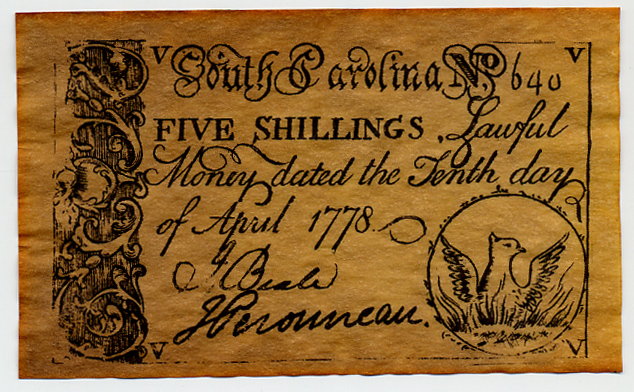 V South Carolina No 640 V
FIVE SHILLINGS, Lawful
Money dated the Tenth day
of April 1778
J Beale
V V